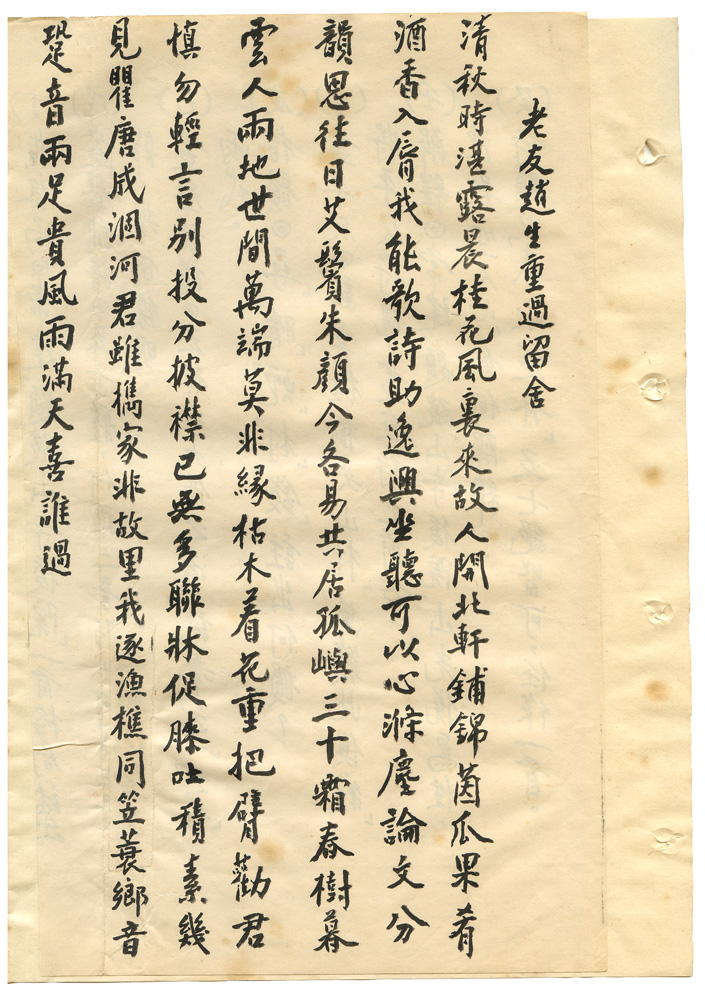 老友趙生重過留舍
清秋時湛露晨桂花風裏來故人開北軒鋪錦茵瓜果肴
酒香入脣我能歌詩助逸興坐聽可以心滌塵論文分
韻思往日艾鬢朱顏今各易共居孤嶼三十霜春樹暮
雲人兩地世間萬端莫非緣枯木着花重把臂勸君
慎勿輕言別投分披襟已無多聯牀促膝吐積素幾
見瞿唐成涸河君雖攜家非故里我逐漁樵同笠蓑鄉音
跫音兩足貴風雨滿天喜誰過